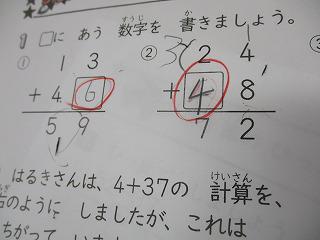 9 □に あう 数字を 書きましょう。
すうじ か
① ② 3
1 3 2 4
+ 4 6 + 4 8
5 9 7 2
1
はるきさんは、4+37の 計算を、
けいさん
のように しましたが、これは
ちがって いま